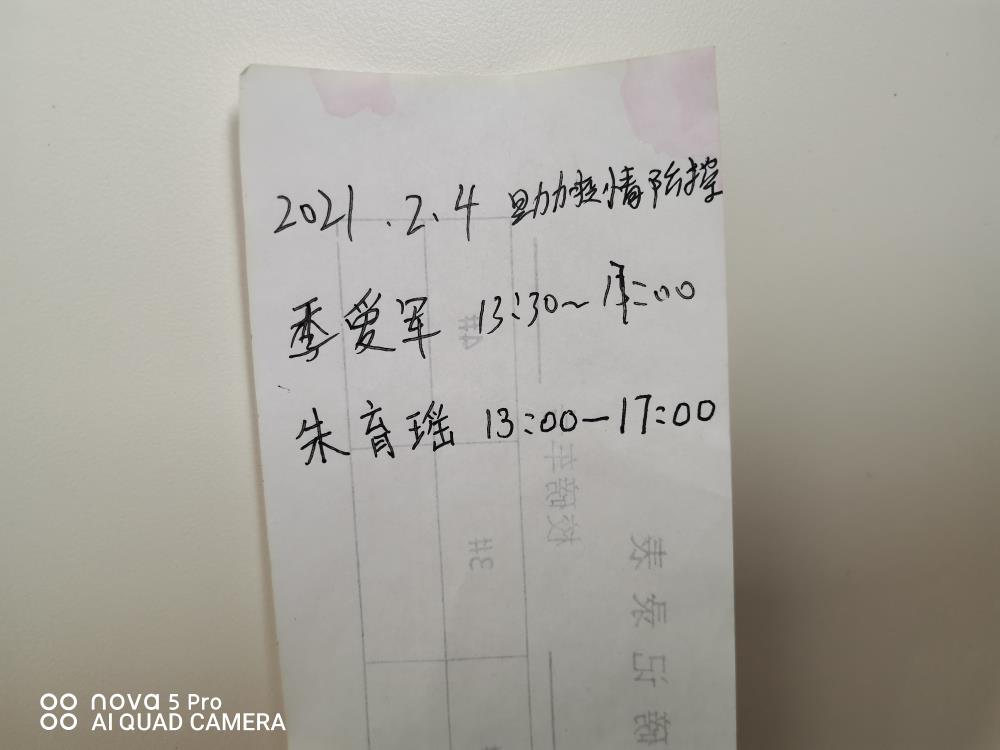 2021.2.4 助力疫情防控
季爱军 13:30~17:00
朱育瑶 13:00-17:00
4#
3#
nova 5 Pro
AI QUAD CAMERA